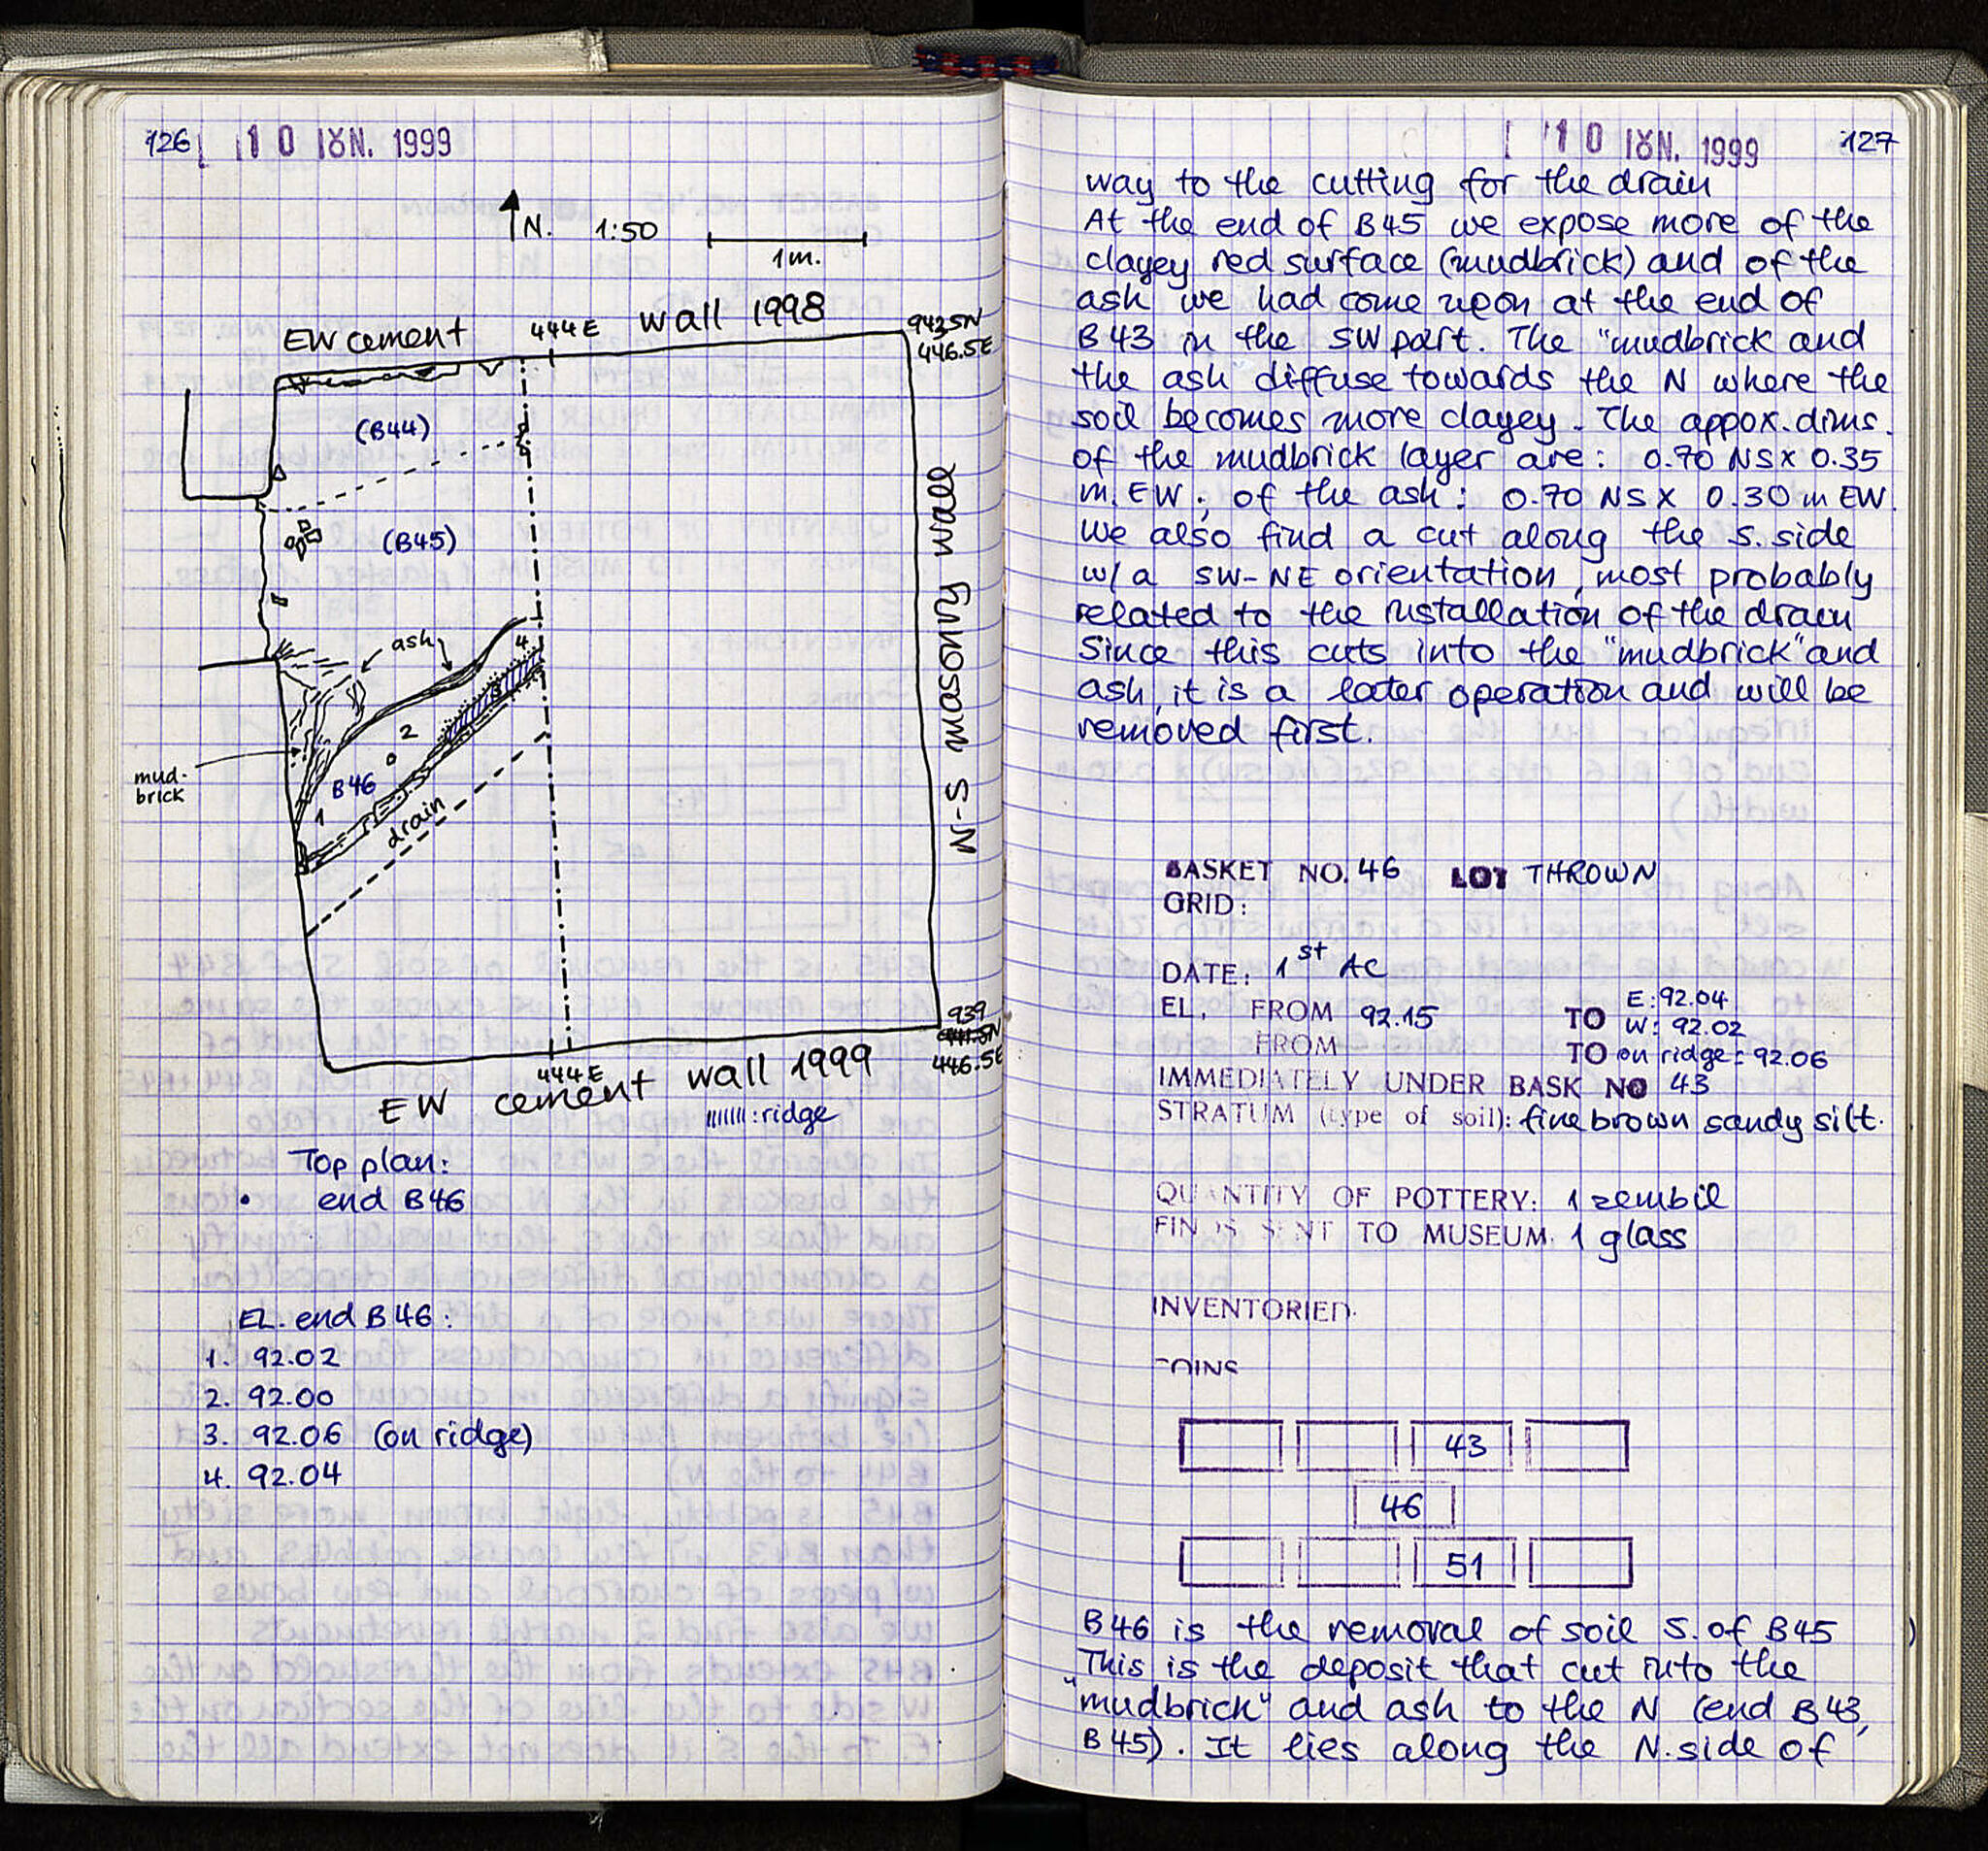 126
10 ΙΟΥΝ. 1999
N. 1:50
1m.
EW cement 444E wall 1998
942.5N
446.5E
(B44)
(B45)
ash
4
3
2
B46
1
mud-
brick
drain
N-S masonry wall
939
446.5E
444E
EW cement wall 1999
: ridge
Top plan:
• end B46
EL. end B46:
1. 92.02
2. 92.00
3. 92.06 (on ridge)
4. 92.04
10 ΙΟΥΝ. 1999
127
way to the cutting for the drain
At the end of B45 we expose more of the
clayey red surface (mudbrick) and of the
ash we had come upon at the end of
B43 in the SW part. The "mudbrick and
the ash diffuse towards the N where the
soil becomes more clayey. The appox. dims.
of the mudbrick layer are: 0.70 NS x 0.35
m. EW; of the ash: 0.70 NS x 0.30 m EW.
We also find a cut along the S. side
w/a SW-NE orientation, most probably
related to the installation of the drain
Since this cuts into the "mudbrick" and
ash, it is a later operation and will be
removed first.
BASKET NO. 46 LOT THROWN
GRID:
DATE: 1st AC
EL. FROM 92.15 TO E: 92.04
W: 92.02
FROM TO on ridge: 92.06
IMMEDIATELY UNDER BASK NO 43
STRATUM (type of soil): fine brown sandy silt.
QUANTITY OF POTTERY: 1 zembil
FINDS SENT TO MUSEUM: 1 glass
INVENTORIED:
COINS
43
46
51
B46 is the removal of soil S. of B45
This is the deposit that cut into the
"mudbrick" and ash to the N (end B43,
B45). It lies along the N. side of